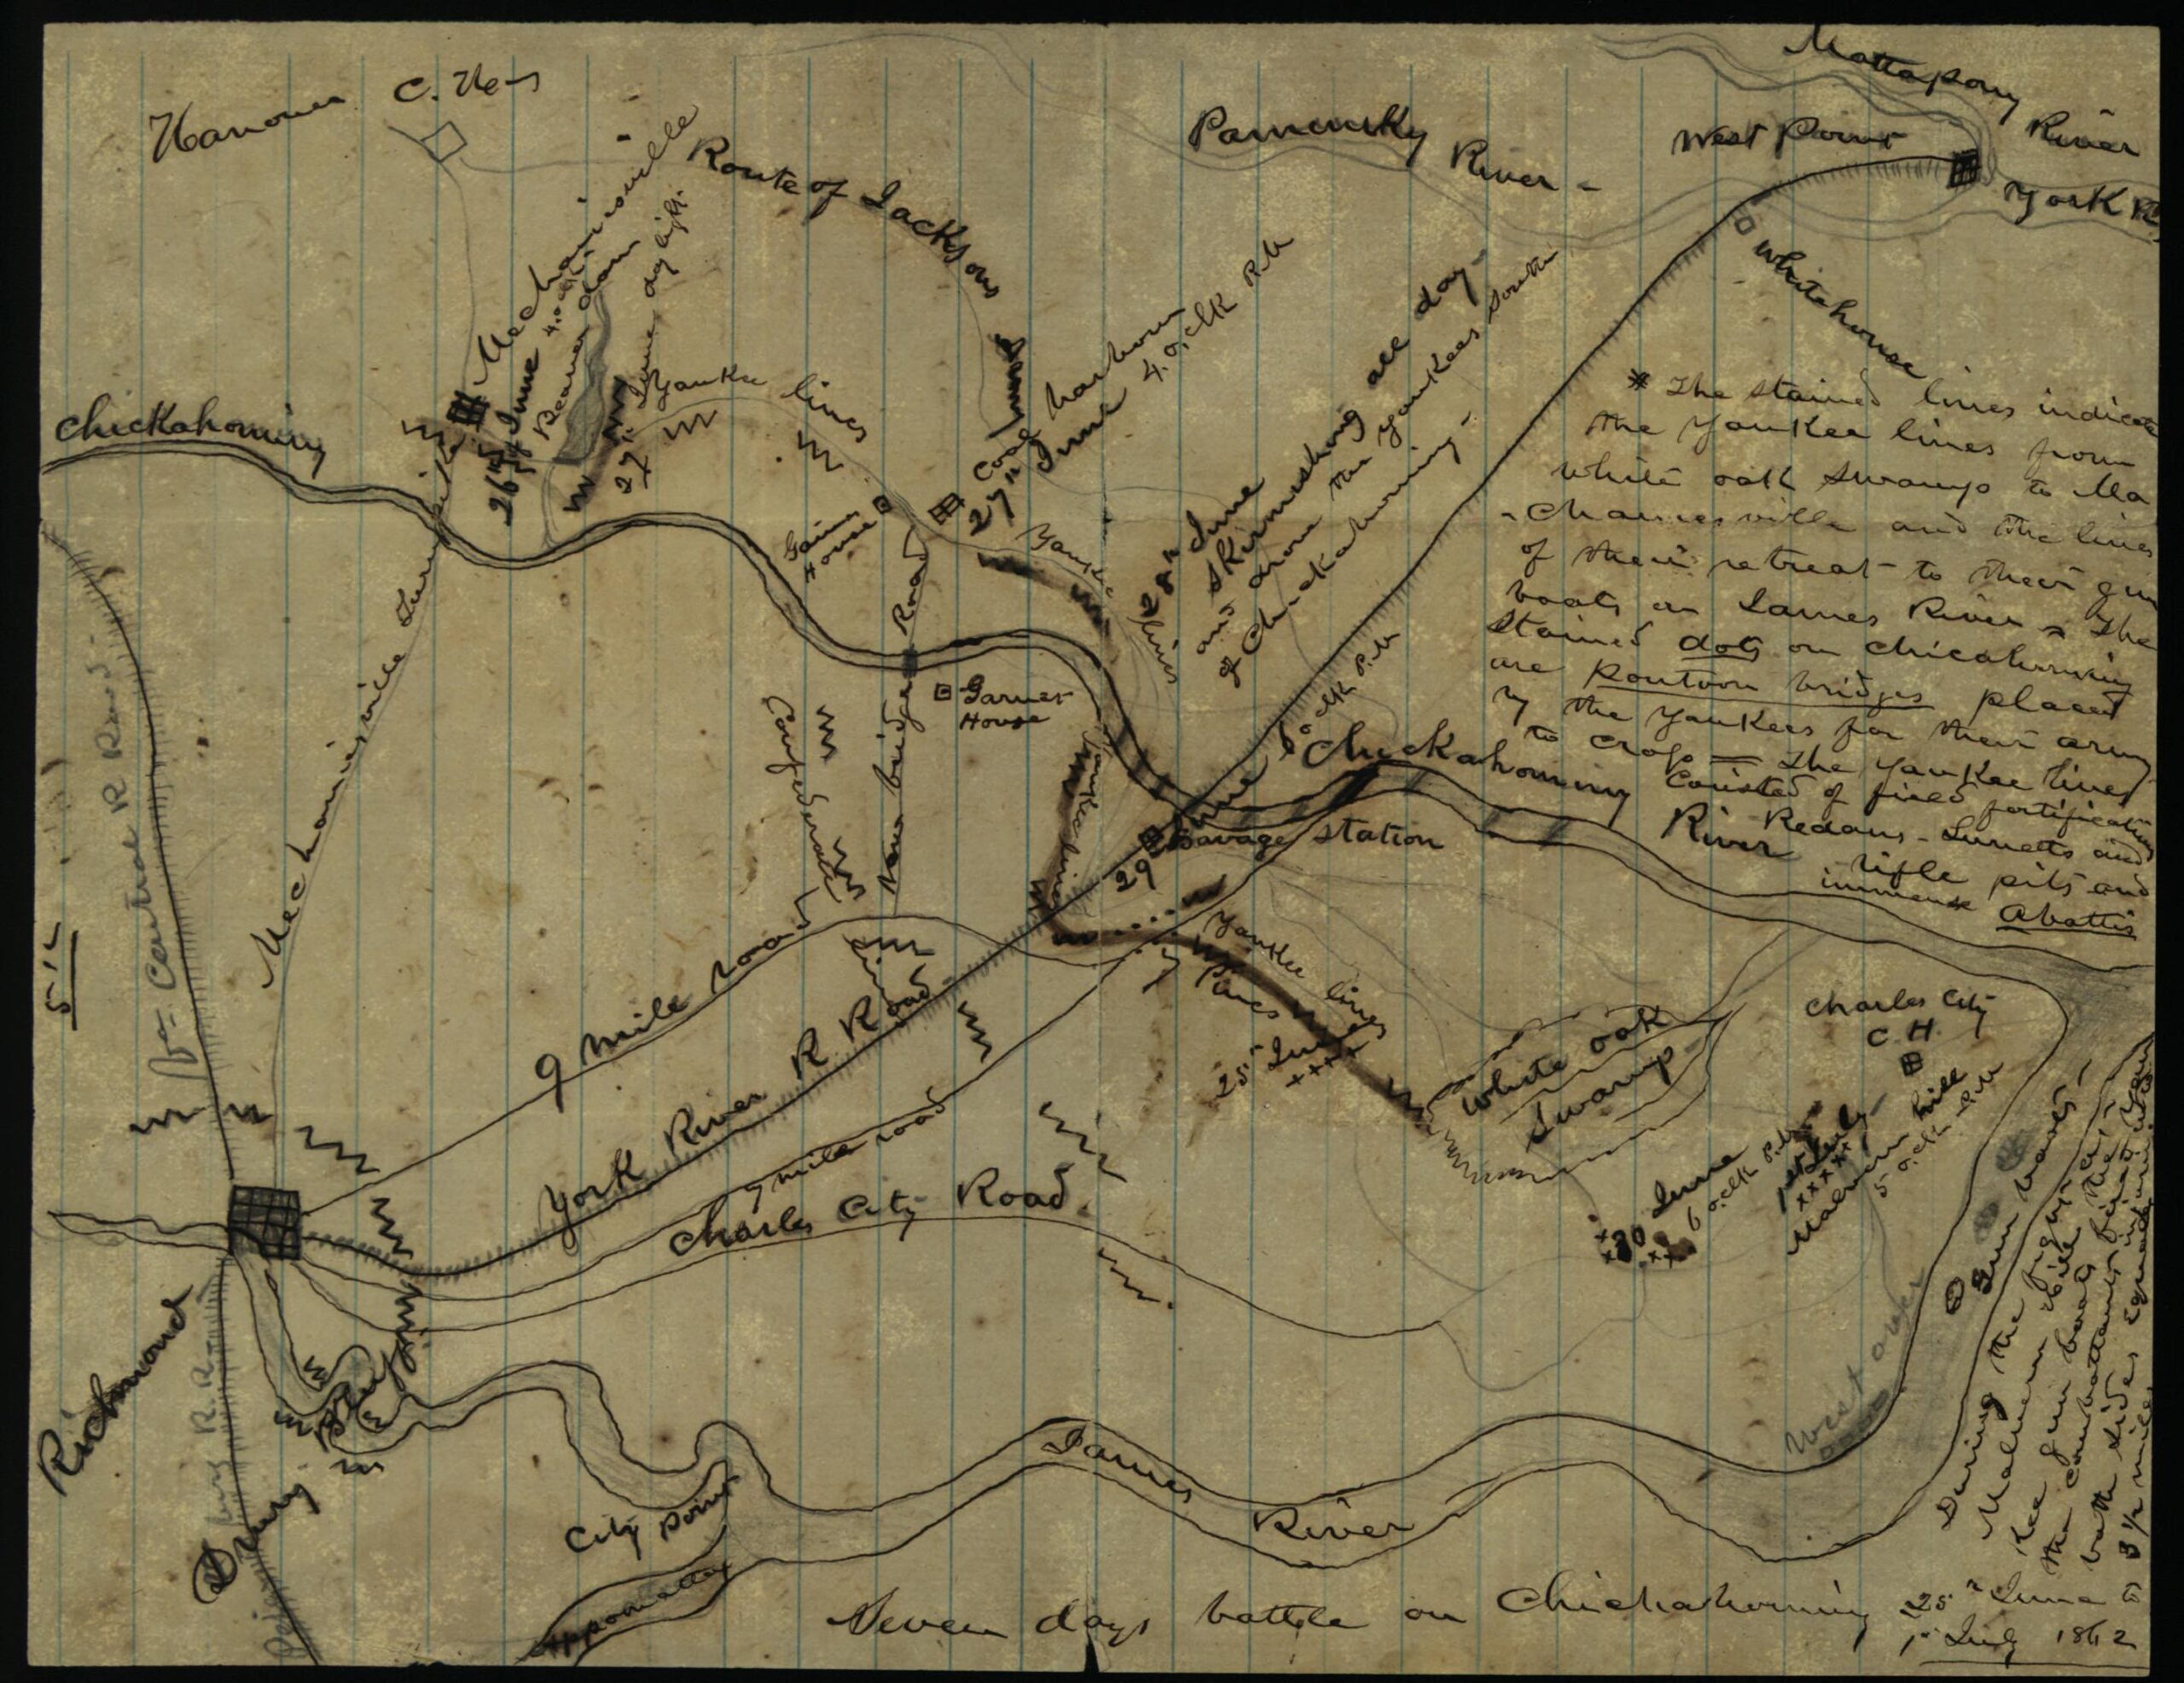 Hanover C. He-s
Mattapony River
Pamunky River -
West Point
York R
Whitehouse
Route of Jacksons
Mechanicsville
26th June 4.o.clk
Beaver dam
27" June day light
Yankee lines
Chickahominy
Coal harbour
27" June 4.o,clk P.M
28th June
Skirmishing all day -
and drove the Yankees South
of Chickahominy -
* The stained lines indicate
the Yankee lines from
White oak Swamp to Me
-chanicsville and the lines
of their retreat to their gun
boats on James River - The
Stained dots on Chicahominy
are Pontoon bridges placed
by the Yankees for their army
to cross — The Yankee lines
Consisted of fixed fortifications
Redans - Lunetts and
rifle pits and
immense Abattis
Gaines House
Garnet House
Yankee lines
New bridge Road
Confederate
Yankee lines
Mechanicsville Turnpike
Central R Road
Chickahominy River
Savage Station
29 June 6 oclk P.M
9 mile road
York River R. Road
7 mile road
Charles City Road
7 Pines
Yankee lines
25" June
++++
White oak Swamp
Charles City
C. H.
30 June
6 oclk P.M
1st July
xxxxx
Malvern hill
5 o.clk P.M
Gun boats -
West over
Richmond
Drury Bluff
R.R.
City Point
Appomattox
James River
During the fight at
Malvern Hill the Yan
kee gun boats fired into
the combattants
both sides
3 1/2 miles
Seven days battle on Chickahominy 25" June to
1st July 1862